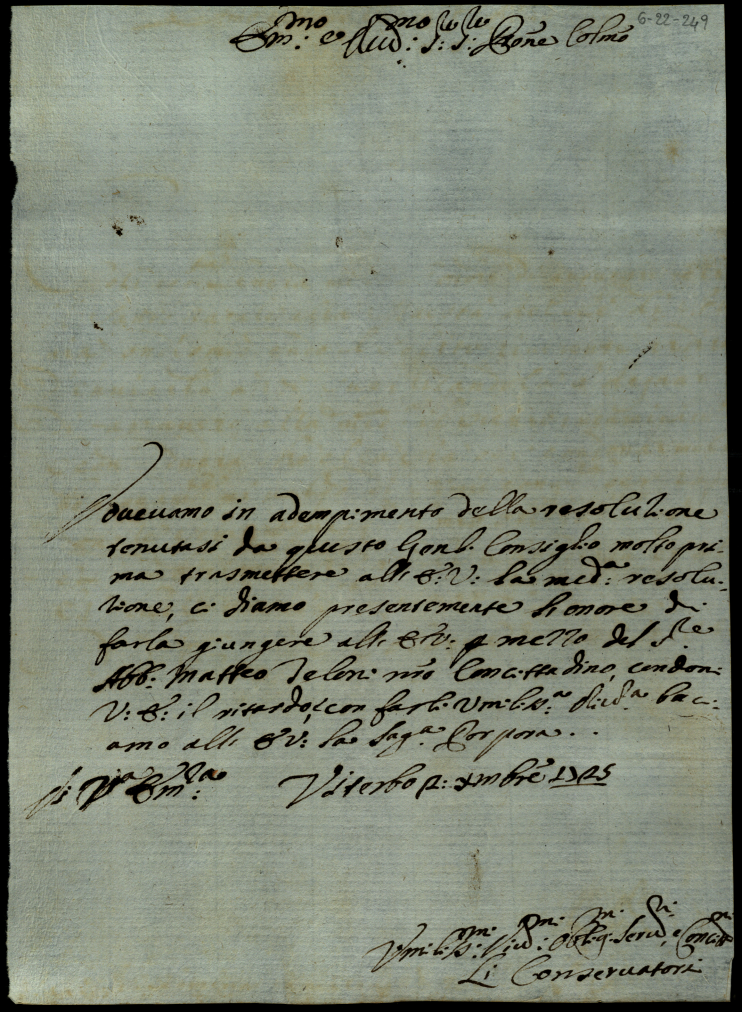 6-22-249
Em:mo e Reud:mo Sig:re Sig:re Prōne Colmo
Doueuamo in adempimento della resolutione
tenutasi da questo Gen:l Consiglio molto pri-
ma trasmettere all' E: V: la med:a resolu-
tione, ci diamo presentemente l'onore di
farla giungere all' E: V: p mezzo del Sig:re
Abb: Matteo nro Concittadino, condoni
V: E: il ritardo, e con farli Vmiliss:a riu:a baci-
amo all' E: V: la Sag:a Porpora..
Di V:ra Em:za Viterbo Xmbre 1725
Vmiliss:mi Obblig:mi Seru:ri e Concitt:ni
Li Conseruatori